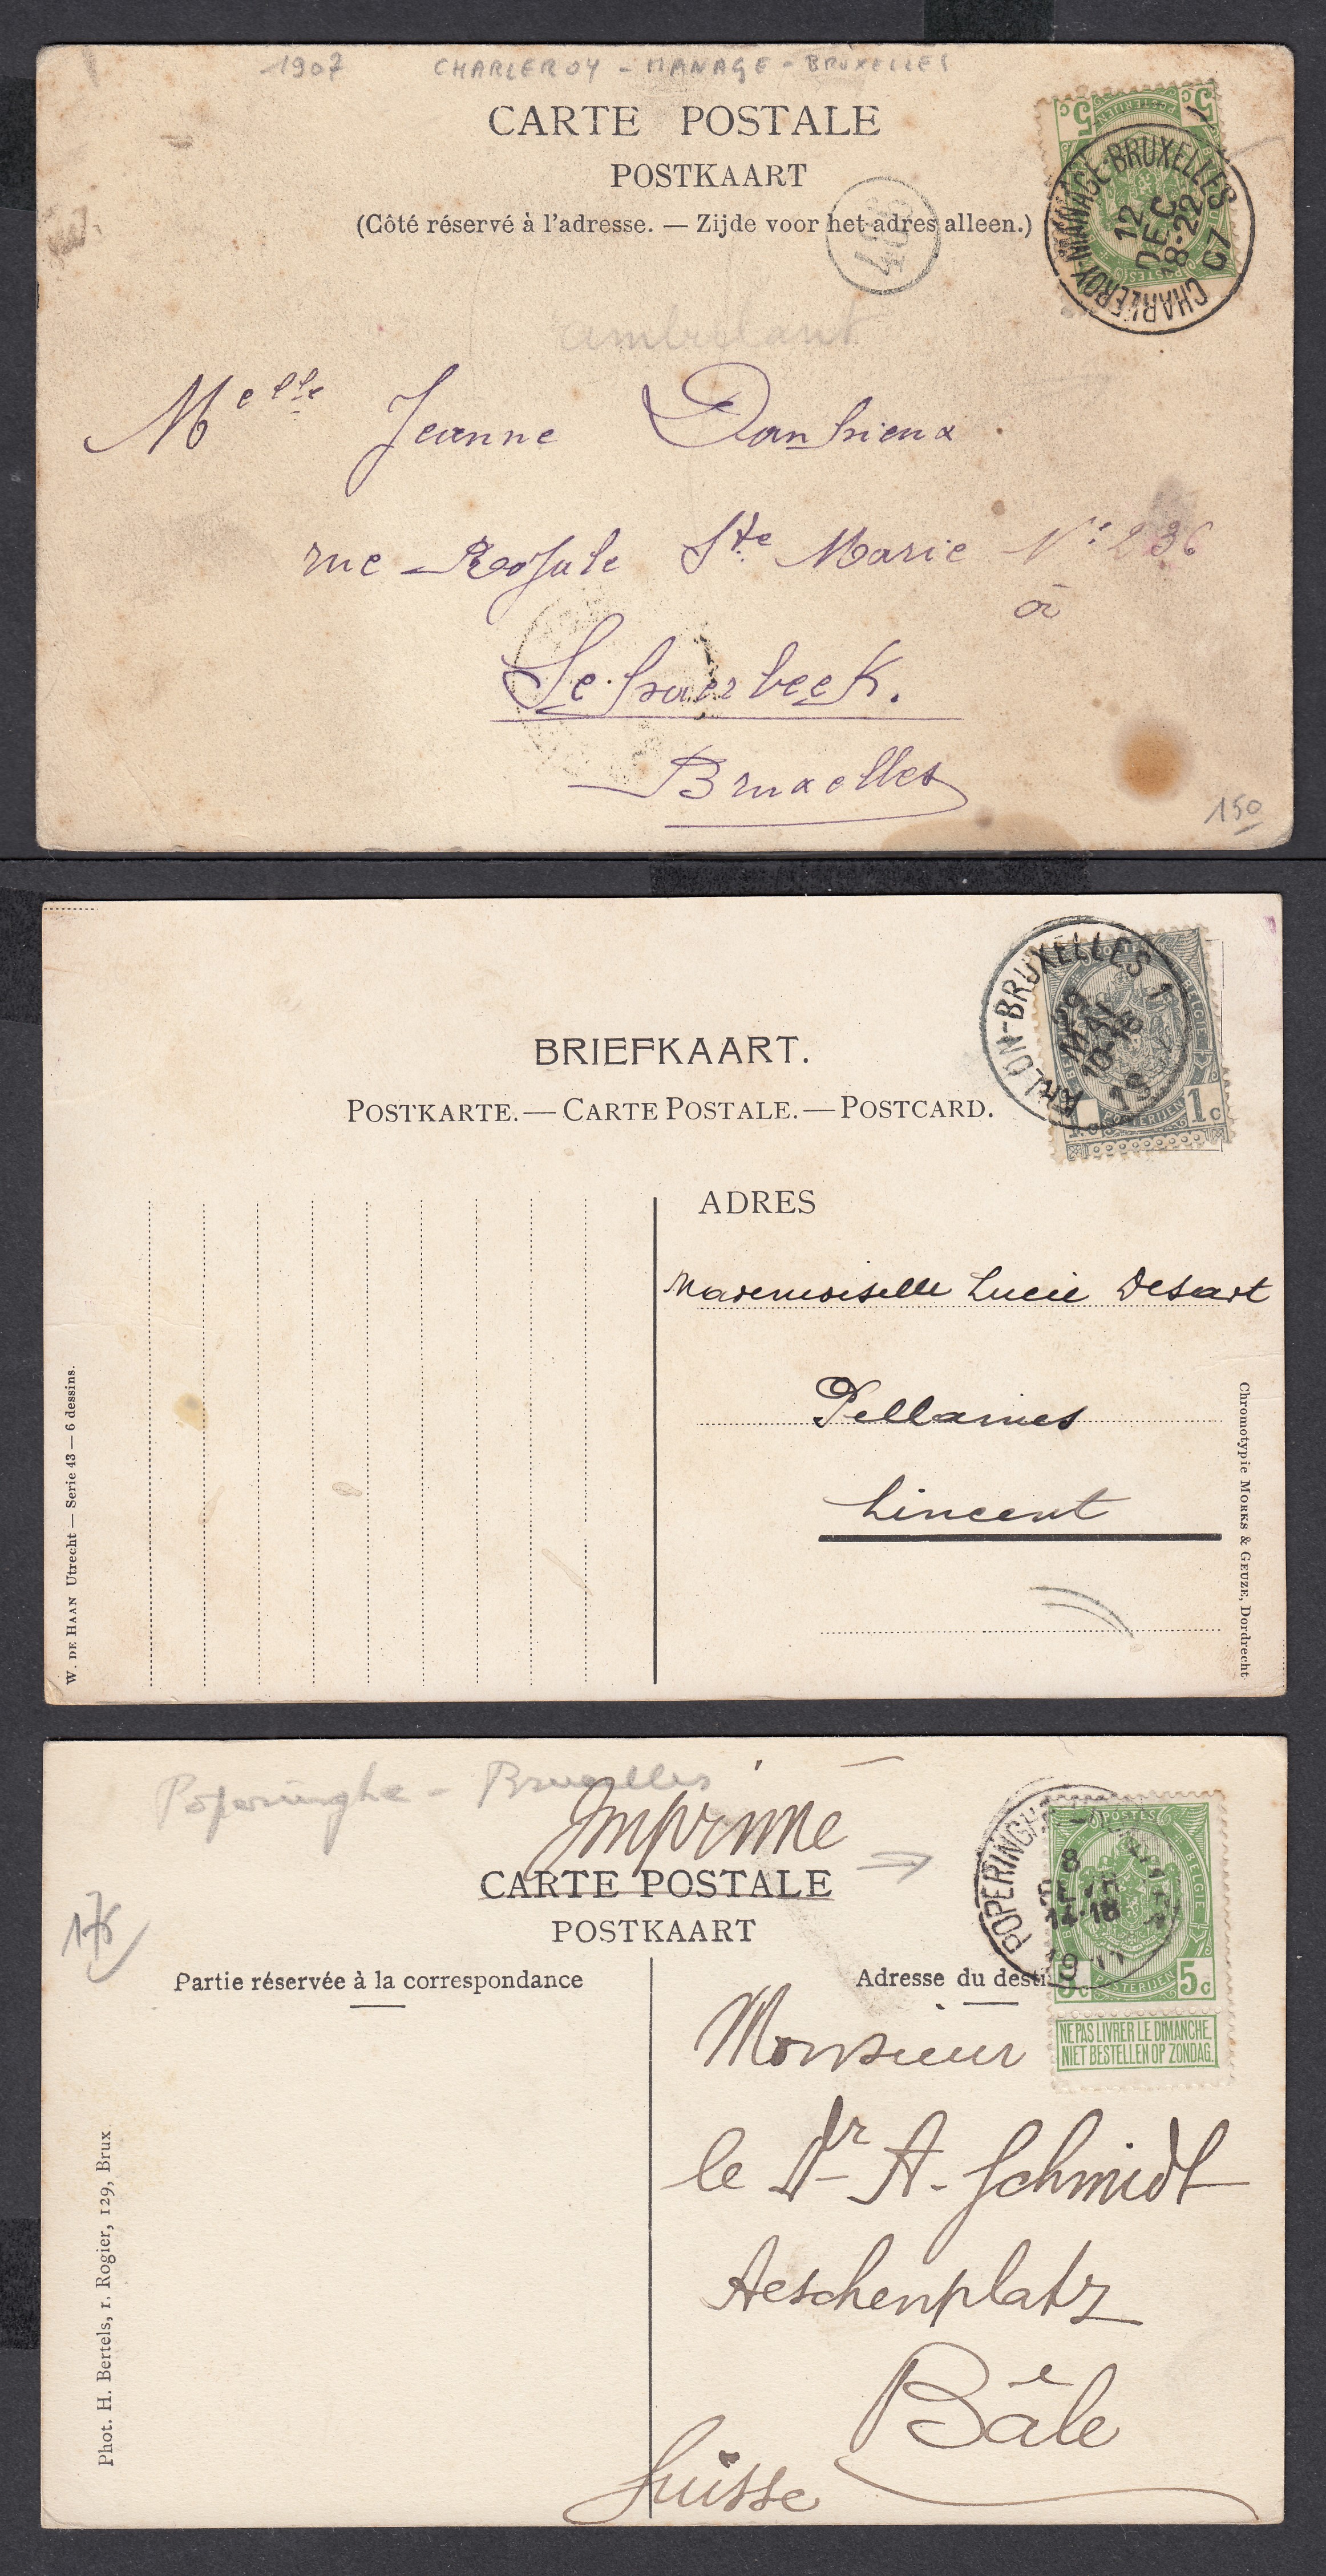 1907 CHARLEROY - MANAGE - BRUXELLES
CARTE POSTALE
POSTKAART
(Côté réservé à l'adresse. — Zijde voor het adres alleen.)
5c 5c
CHARLEROY-MANAGE-BRUXELLES 1
12
DEC
18-22
07
ambulant
Melle Jeanne
rue Ste Marie N° 236
à
Bruxelles
150
BRIEFKAART.
POSTKARTE. — CARTE POSTALE. — POSTCARD.
ARLON-BRUXELLES 1
29
MAI
POSTES BELGIE
POSTERIJEN 1c
ADRES
Mademoiselle Lucie Desart
Pellaines
Lincent
W. DE HAAN Utrecht — Serie 43 — 6 dessins.
Chromotypie MORKS & GEUZE, Dordrecht
Poperinghe - Bruxelles
Imprimé
CARTE POSTALE
POSTKAART
175
Partie réservée à la correspondance
Adresse du desti
POPERINGHE
8
14-18
POSTES BELGIE
5c POSTERIJEN 5c
NE PAS LIVRER LE DIMANCHE.
NIET BESTELLEN OP ZONDAG.
Monsieur
le Dr A. Schmidt
Aeschenplatz
Bâle
Suisse
Phot. H. Bertels, r. Rogier, 129, Brux